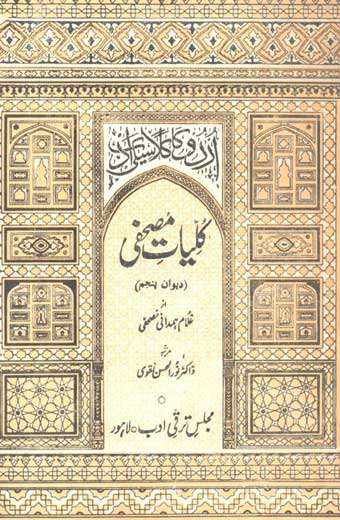 اردو کا کلاسیکی ادب
کلیاتِ مصحفی
(دیوان پنجم)
از
غلام ہمدانی مصحفی
مرتبہ
ڈاکٹر نور الحسن نقوی
مجلسِ ترقی ادب ○ لاہور